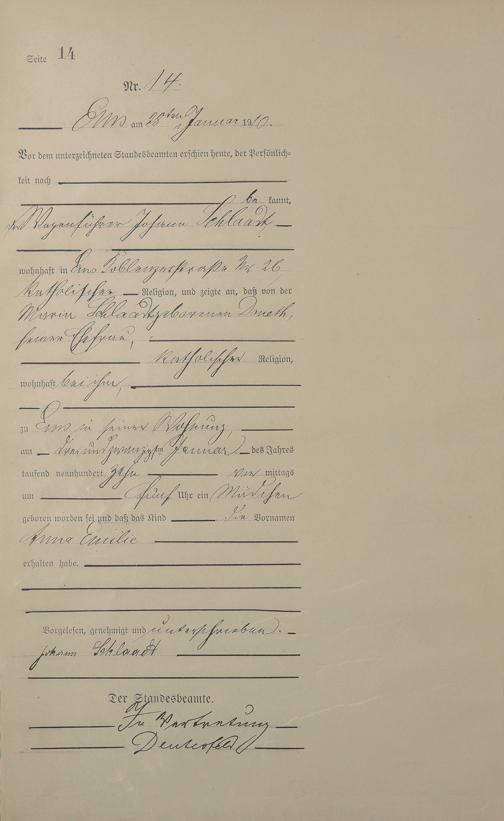 Seite 14
Nr. 14.
Ems am 28ten Januar 1910.
Vor dem unterzeichneten Standesbeamten erschien heute, der Persönlich-
keit nach
be kannt,
der Wagenführer Johann Schlaadt
wohnhaft in Ems Coblenzerstraße Nr 26
katholischer Religion, und zeigte an, daß von der
Maria Schlaadt geborenen Donath,
seiner Ehefrau,
katholischer Religion,
wohnhaft bei ihm,
zu Ems in seiner Wohnung,
am dreiundzwanzigsten Januar des Jahres
tausend neunhundert zehn vor mittags
um fünf Uhr ein Mädchen
geboren worden sei und daß das Kind die Vornamen
Anna Emilie
erhalten habe.
Vorgelesen, genehmigt und unterschrieben.
Johann Schlaadt
Der Standesbeamte.
In Vertretung